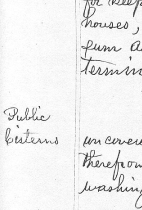 for keep
houses,
gum a
termin
Public
Cisterns
uncovere
therefrom
washing